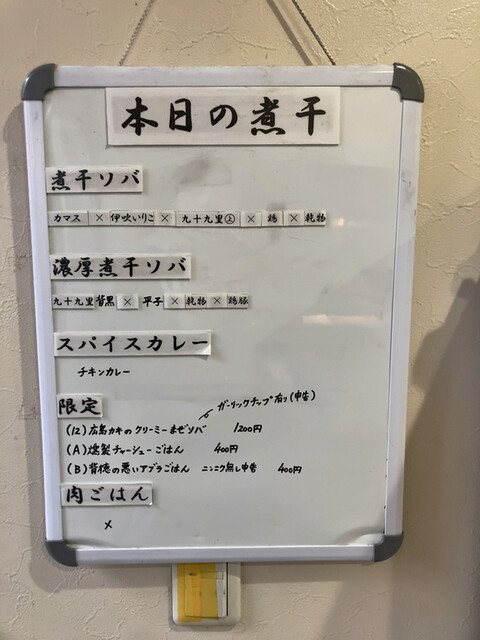 本日の煮干
煮干ソバ
カマス × 伊吹いりこ × 九十九里㊤ × 鶏 × 乾物
濃厚煮干ソバ
九十九里 背黒 × 平子 × 乾物 × 鶏豚
スパイスカレー
チキンカレー
限定
ガーリックチップ有り(申告)
(12) 広島カキのクリーミーまぜソバ 1200円
(A) 燻製チャーシューごはん 400円
(B) 背徳の悪いアブラごはん ニンニク無し申告 400円
肉ごはん
×